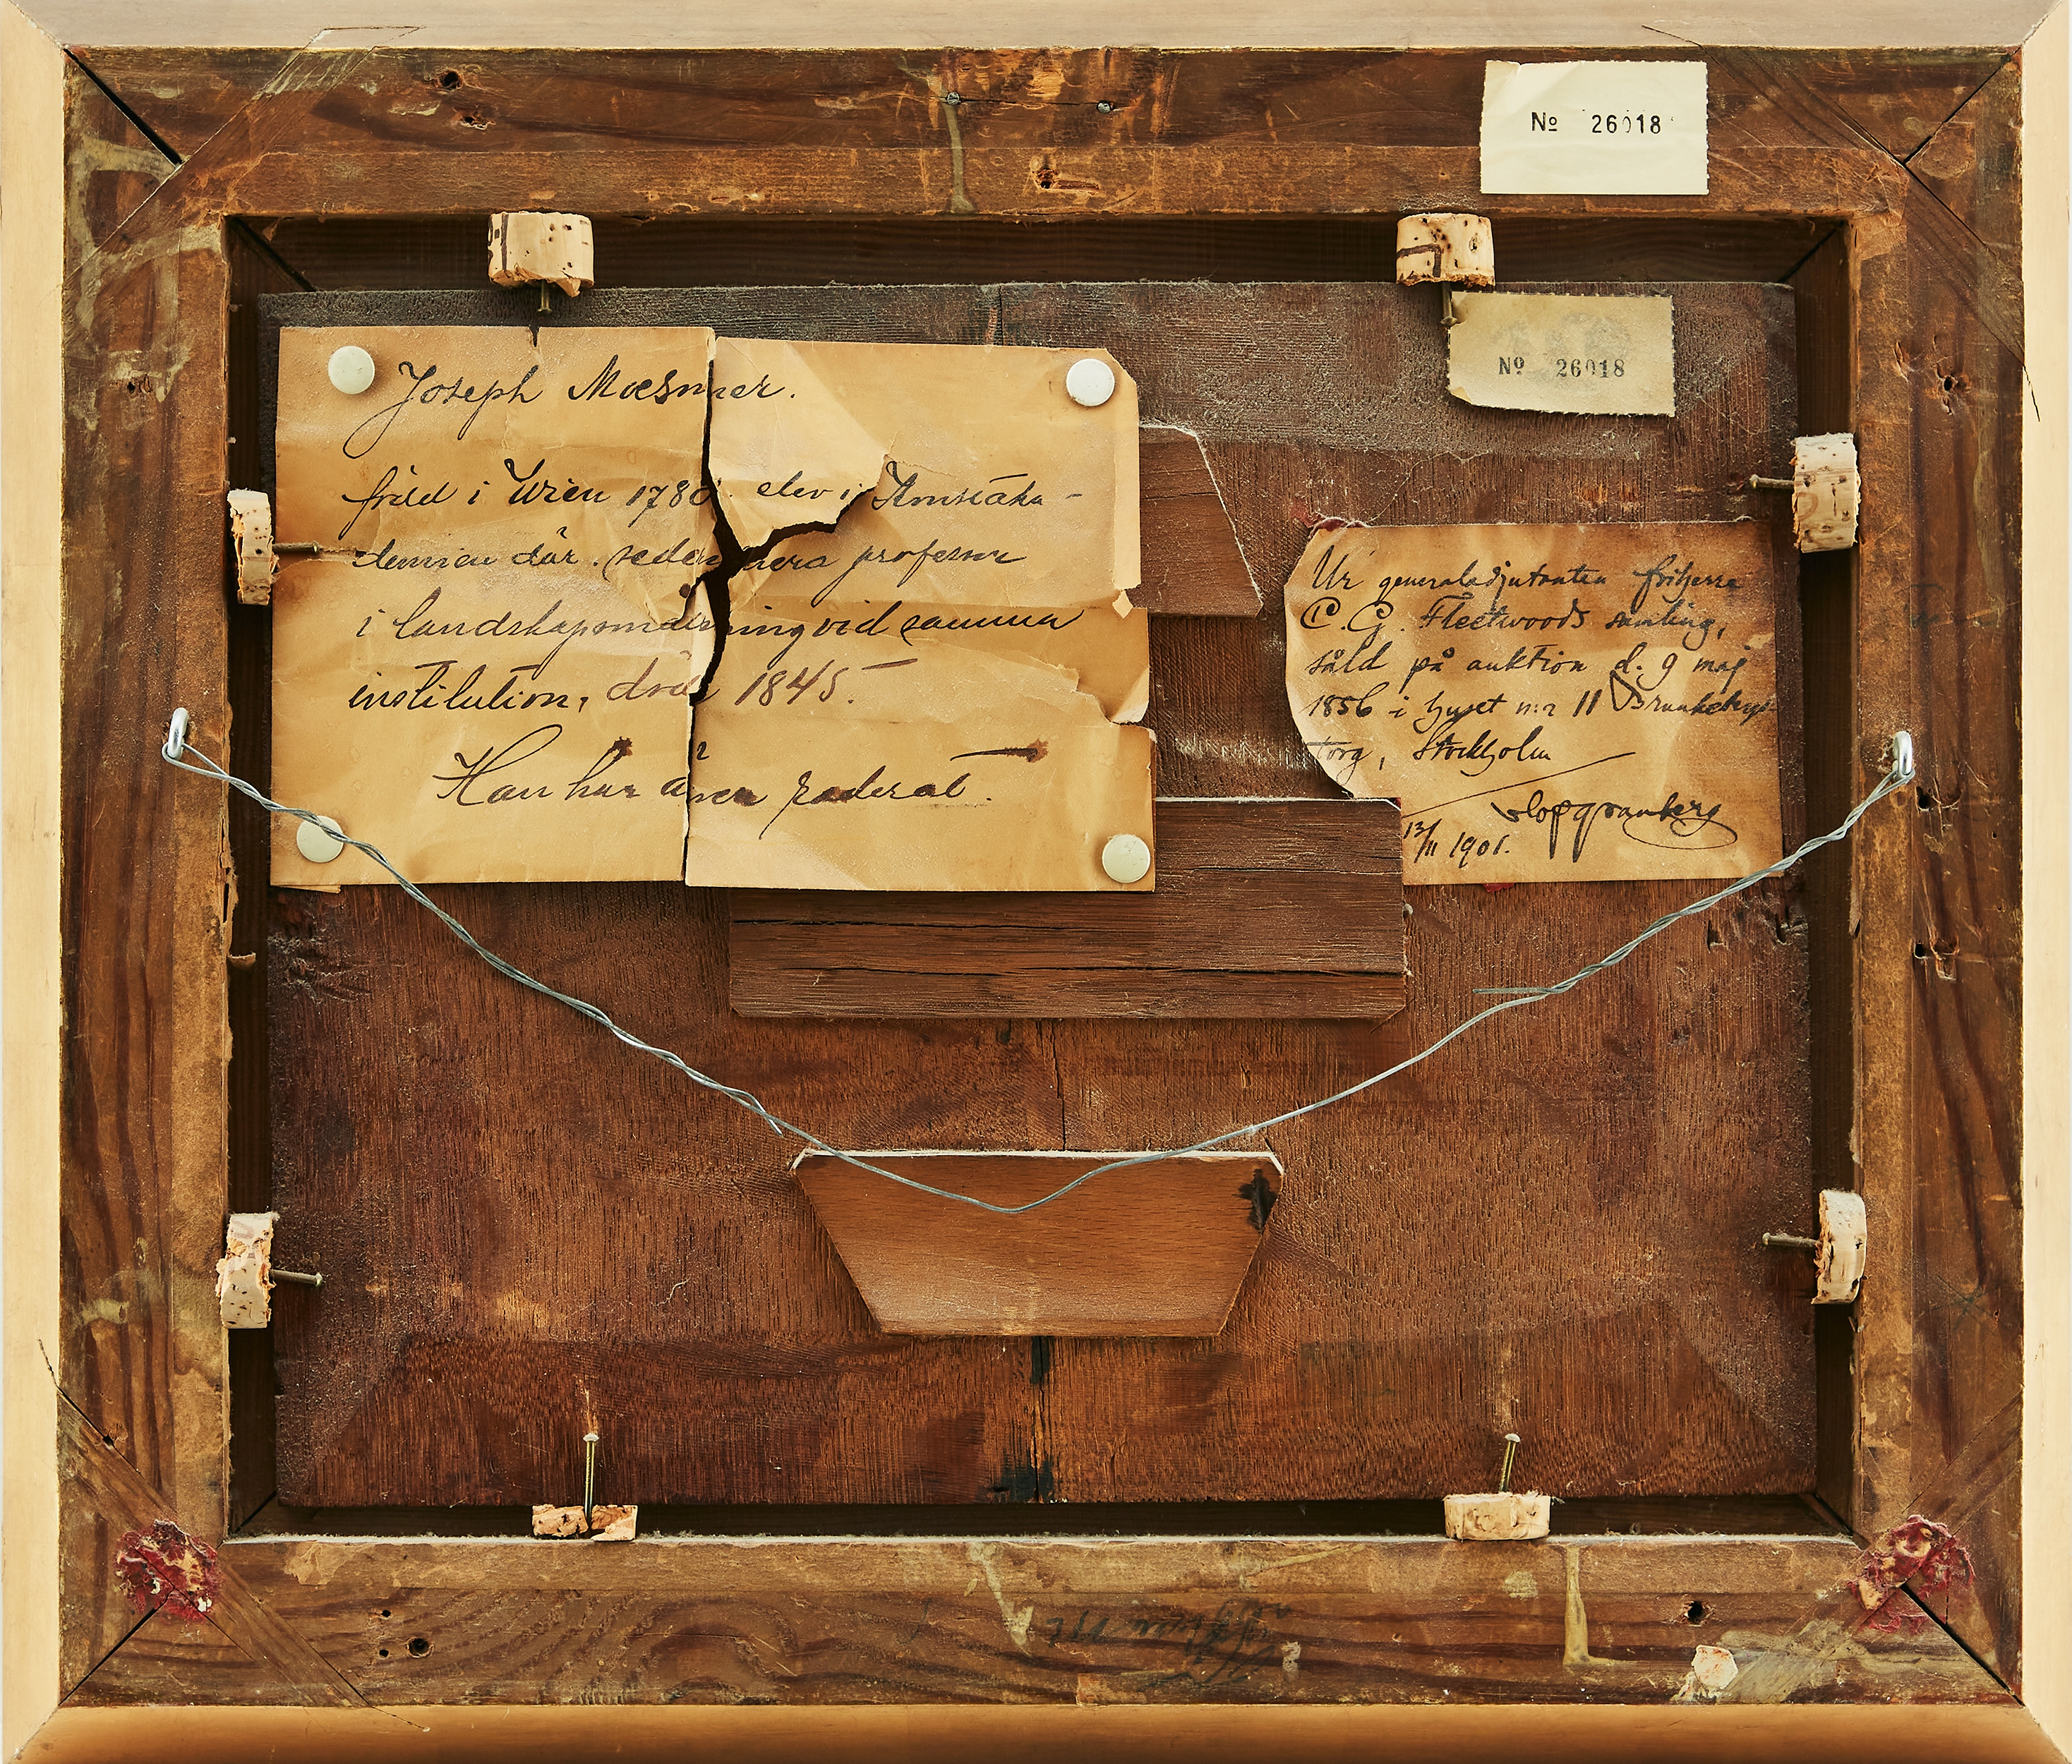 Nº 26018
Nº 26018
Joseph Mœsmer.
född i Wien 1780. elev i Konstaka-
demien där. sedermera professor
i landskapsmålning vid samma
institution, död 1845.
Han har även raderat.
Ur generaladjutanten friherre
C. G. Fleetwoods samling,
såld på auktion d. 9 maj
1856 i huset n:r 11 Brunkebergs-
torg, Stockholm
Olof Granberg
13/11 1901.